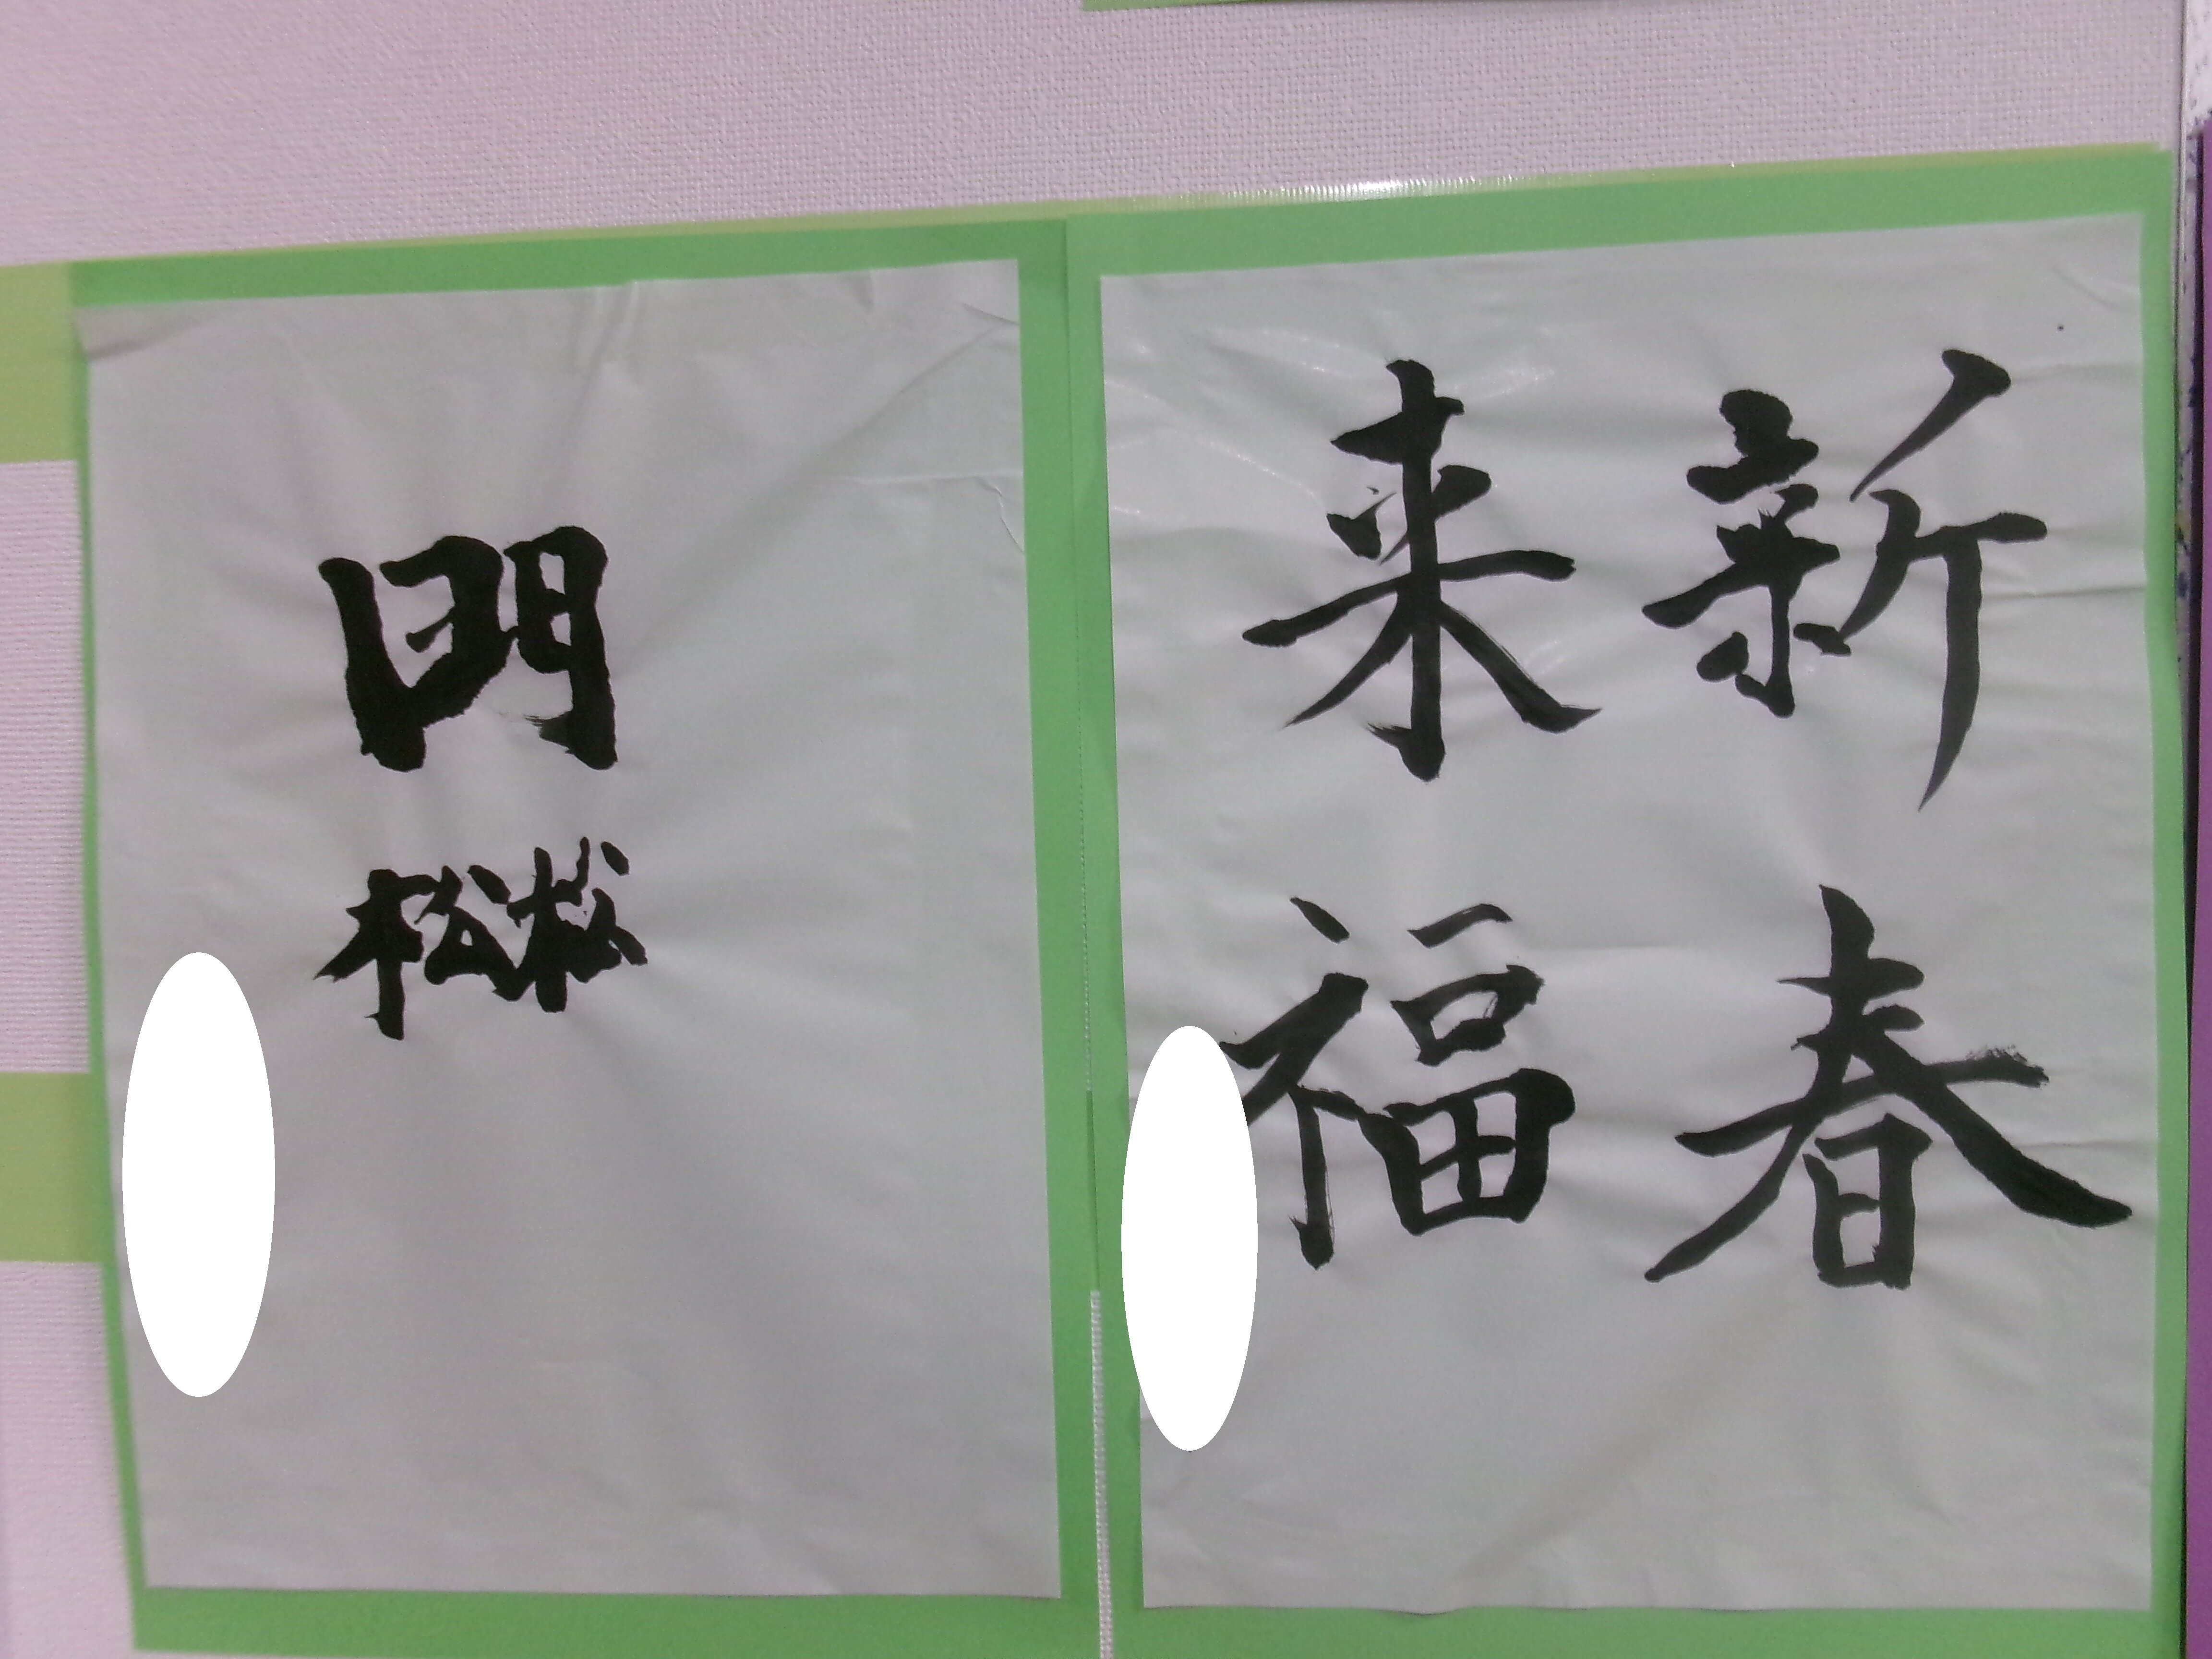 新春
来福
門
松松